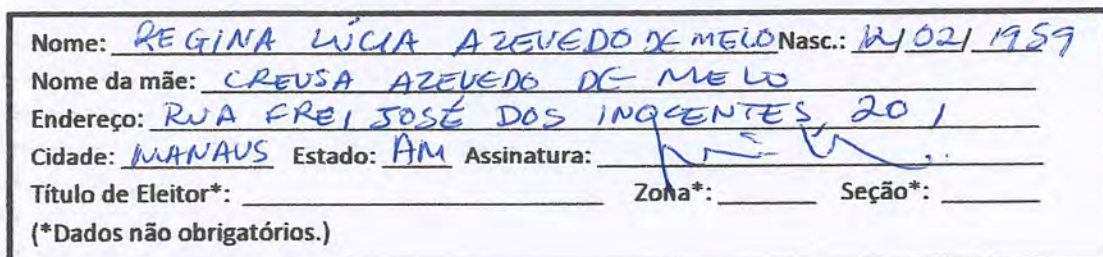 Nome: REGINA LÚCIA AZEVEDO DE MELO Nasc.: 12/02/1959
Nome da mãe: CREUSA AZEVEDO DE MELO
Endereço: RUA FREI JOSÉ DOS INOCENTES, 201
Cidade: MANAUS Estado: AM Assinatura:
Título de Eleitor*: Zona*: Seção*:
(*Dados não obrigatórios.)